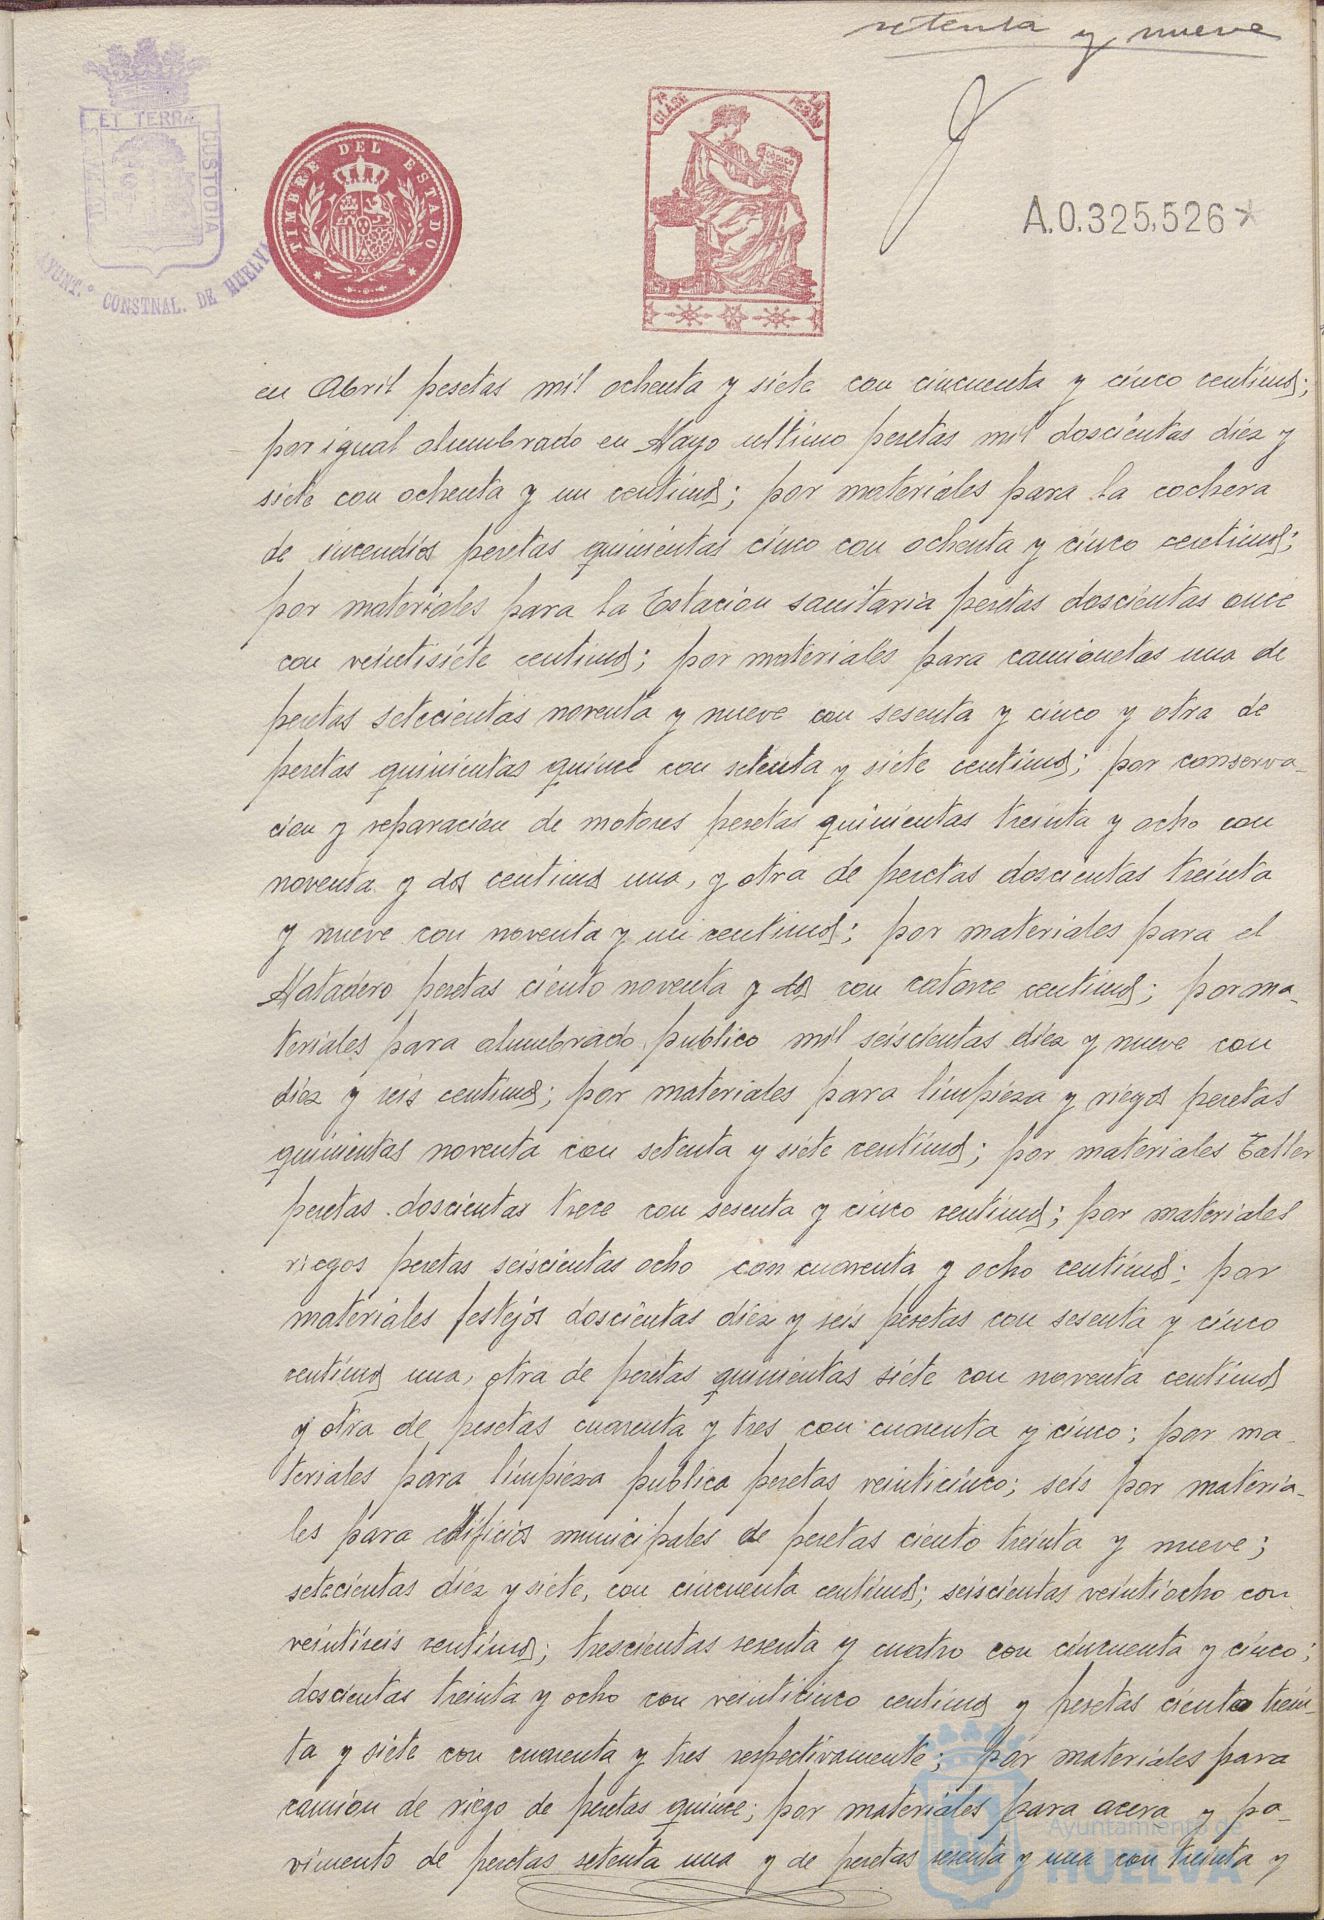 setenta y nueve
ET TERRÆ
CUSTODIA
AYUNT.º CONSTNAL. DE HUELVA
TIMBRE DEL ESTADO
7ª CLASE
PESETA
CODIGO
A.0.325,526
en Abril pesetas mil ochenta y siete con cincuenta y cinco centimos;
por igual alumbrado en Mayo ultimo pesetas mil doscientas diez y
siete con ochenta y un centimos; por materiales para la cochera
de incendios pesetas quinientas cinco con ochenta y cinco centimos;
por materiales para la Estacion sanitaria pesetas doscientas once
con veintisiete centimos; por materiales para camionetas una de
pesetas setecientas noventa y nueve con sesenta y cinco y otra de
pesetas quinientas quince con setenta y siete centimos; por conserva-
cion y reparacion de motores pesetas quinientas treinta y ocho con
noventa y dos centimos una, y otra de pesetas doscientas treinta
y nueve con noventa y un centimos; por materiales para el
Matadero pesetas ciento noventa y dos con catorce centimos; por ma-
teriales para alumbrado publico mil seiscientas diez y nueve con
diez y seis centimos; por materiales para limpieza y riegos pesetas
quinientas noventa con setenta y siete centimos; por materiales Taller
pesetas doscientas trece con sesenta y cinco centimos; por materiales
riegos pesetas seiscientas ocho con cuarenta y ocho centimos; por
materiales festejos doscientas diez y seis pesetas con sesenta y cinco
centimos una, otra de pesetas quinientas siete con noventa centimos
y otra de pesetas cuarenta y tres con cuarenta y cinco; por ma-
teriales para limpieza publica pesetas veinticinco; seis por materia-
les para edificios municipales de pesetas ciento treinta y nueve;
setecientas diez y siete, con cincuenta centimos; seiscientas veintiocho con
veintiseis centimos; trescientas sesenta y cuatro con cincuenta y cinco;
doscientas treinta y ocho con veinticinco centimos y pesetas ciento trein-
ta y siete con cuarenta y tres respectivamente; por materiales para
camion de riego de pesetas quince; por materiales para acera y pa-
vimento de pesetas setenta una y de pesetas sesenta y una con treinta y
Ayuntamiento de
HUELVA